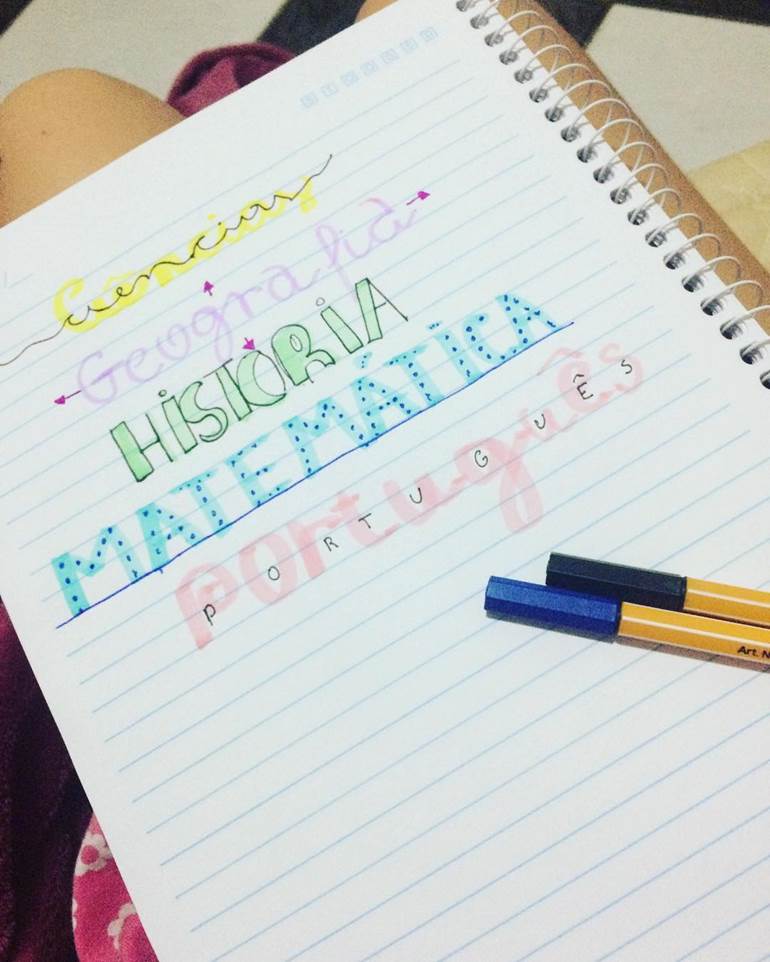 Ciências
Geografia
HiSTORiA
MATEMÁTICA
Português
PORTUGUÊS
Art.